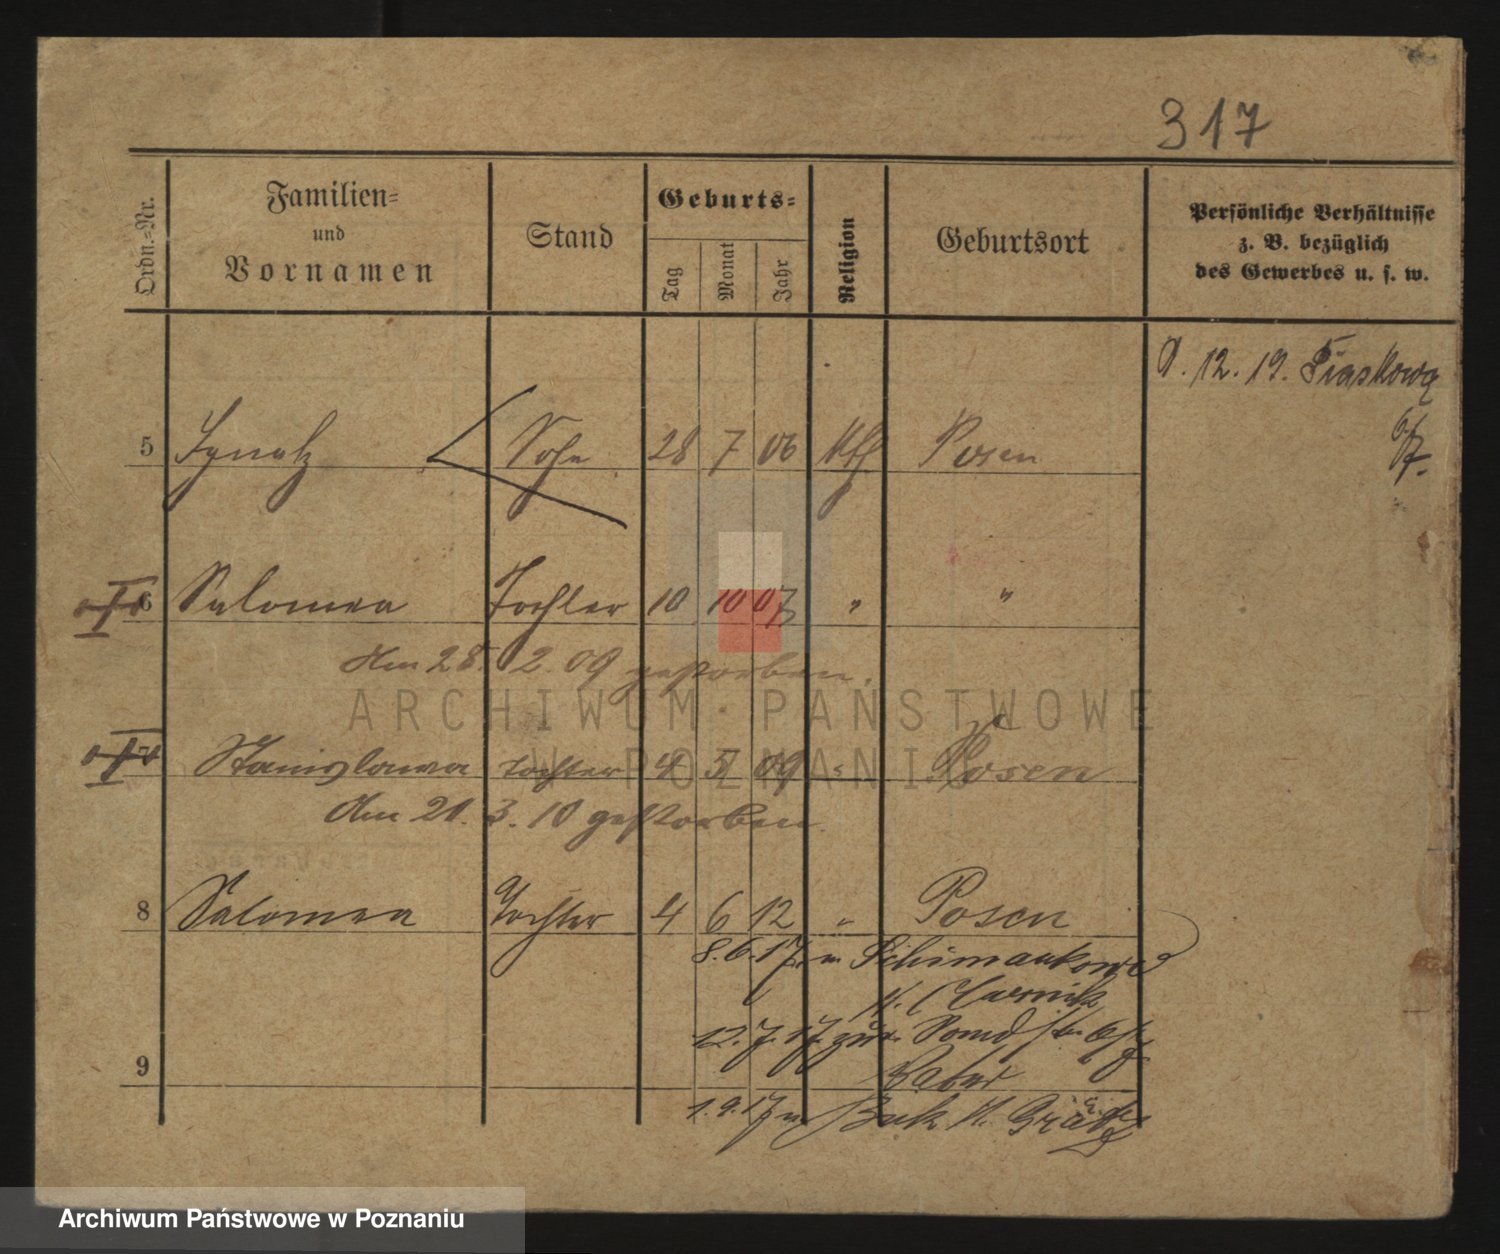 317
Ordn.-Nr.
Familien-
und
Vornamen
Stand
Geburts-
Tag
Monat
Jahr
Religion
Geburtsort
Persönliche Verhältnisse
z. B. bezüglich
des Gewerbes u. s. w.
12. 19. Piaskowa
6/7.
5 Ignatz Sohn 28 7 06 kth Posen
6 Salomea Tochter 10 10 07 " "
Am 28. 2. 09 gestorben.
7 Stanislawa Tochter 4 5 09 " Posen
Am 21. 3. 10 gestorben.
8 Salomea Tochter 4 6 12 " Posen
8.6.17. n.
K. Czarnik
12.7.17 zur.
9
1.9.17 n Buk K. Grätz
ARCHIWUM PAŃSTWOWE
W POZNANIU
Archiwum Państwowe w Poznaniu